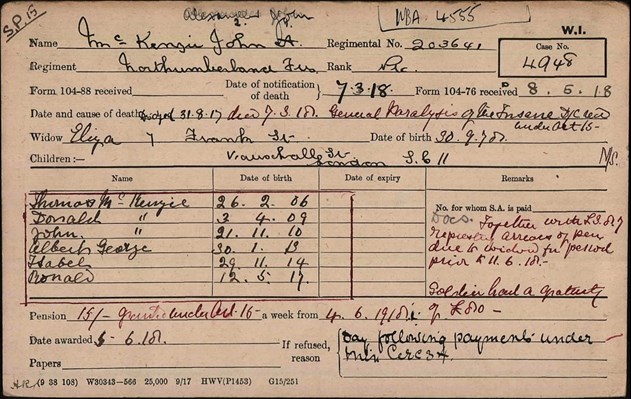 S.P. 15
Alexander John
WBA 4555
W.I.
Name Mc Kenzie John A. Regimental No. 203641
Case No. 4948
Regiment Northumberland Fus Rank Pte.
Form 104-88 received Date of notification of death 7.3.18. Form 104-76 received 8.6.18
Date and cause of death 31.8.17 died 7.3.18. General Paralysis of the Insane
under Art 15-
Widow Eliza 7 Frank St Date of birth 30.9.78.
Children:— Vauxhall St London S.E 11 N/s.
Name Date of birth Date of expiry Remarks
Thomas Mc Kenzie 26.2.06
Donald " 3 4.09
John. " 21.11.10
Albert George 30.1.13
Isabel 29.11.14
Ronald 12.5.17.
No. for whom S.A. is paid
Docs. Together with £3.8.7
represents arrears of pen
due to widow for period
prior to 11.6.18.-
Soldier had a gratuity
of £80-
Pension 15/- granted under Art. 15- a week from 4.6.1918
Date awarded 5-6.18. If refused, reason day following payments under
Papers
(9 38 103) W30343—566 25,000 9/17 HWV(P1453) G15/251